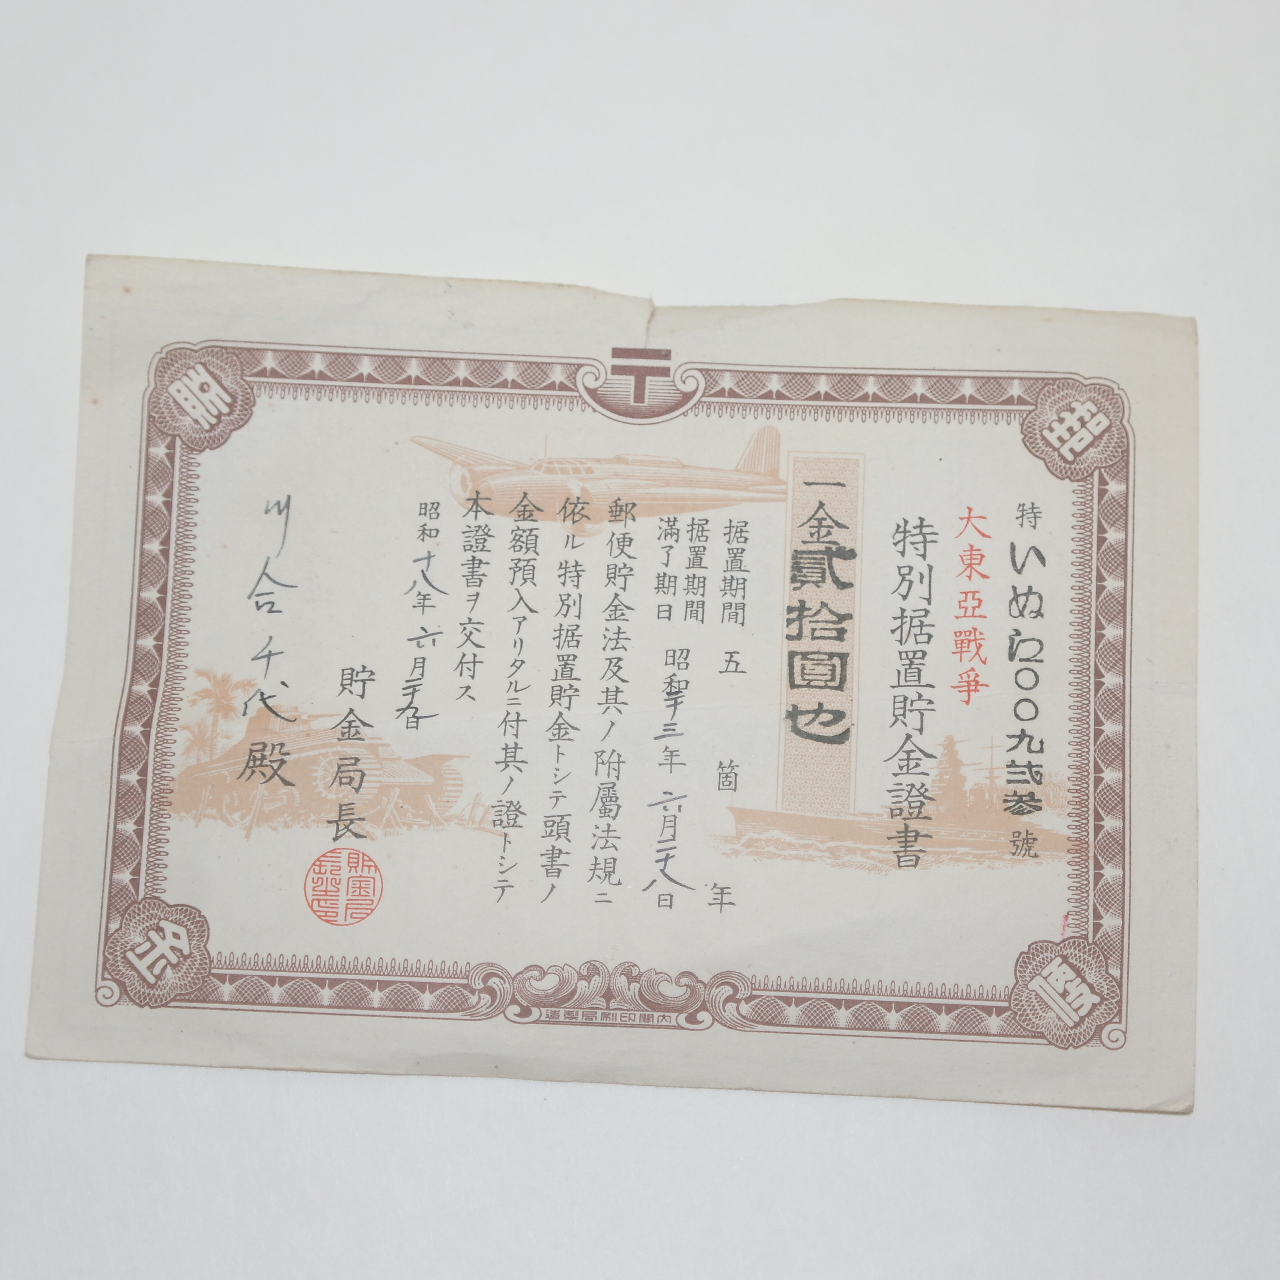 〒
郵
便
貯
金
特いぬに〇〇九弐参號
大東亞戰爭
特別据置貯金證書
一金貳拾圓也
据置期間 五箇年
据置期間
滿了期日 昭和二十三年六月二十八日
郵便貯金法及其ノ附屬法規ニ
依ル特別据置貯金トシテ頭書ノ
金額預入アリタルニ付其ノ證トシテ
本證書ヲ交付ス
昭和十八年六月二十九日
貯金局長
貯金局長之印
川合千代殿
內閣印刷局製造